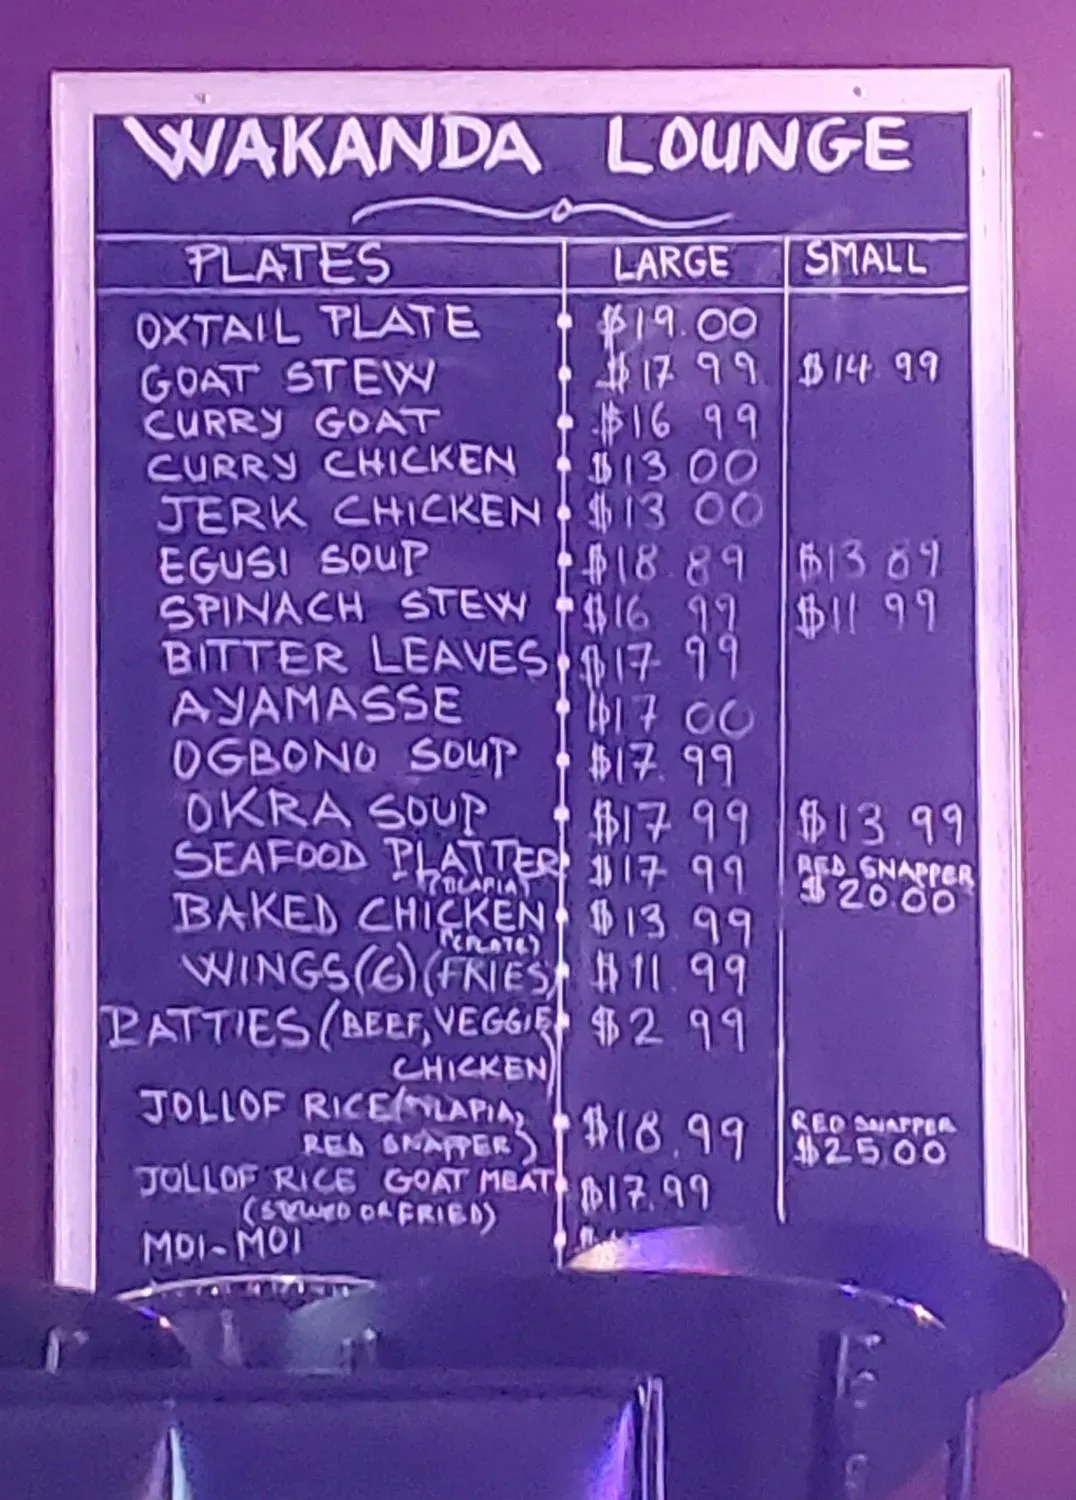 WAKANDA LOUNGE
PLATES LARGE SMALL
OXTAIL PLATE $19.00
GOAT STEW $17.99 $14.99
CURRY GOAT $16.99
CURRY CHICKEN $13.00
JERK CHICKEN $13.00
EGUSI SOUP $18.89 $13.89
SPINACH STEW $16.99 $11.99
BITTER LEAVES $17.99
AYAMASSE $17.00
OGBONO SOUP $17.99
OKRA SOUP $17.99 $13.99
SEAFOOD PLATTER $17.99 RED SNAPPER
(TILAPIA) $20.00
BAKED CHICKEN $13.99
(PLATE)
WINGS(6)(FRIES) $11.99
PATTIES (BEEF, VEGGIE $2.99
CHICKEN)
JOLLOF RICE (TILAPIA, $18.99 RED SNAPPER
RED SNAPPER) $25.00
JOLLOF RICE GOAT MEAT $17.99
(STEWED OR FRIED)
MOI-MOI